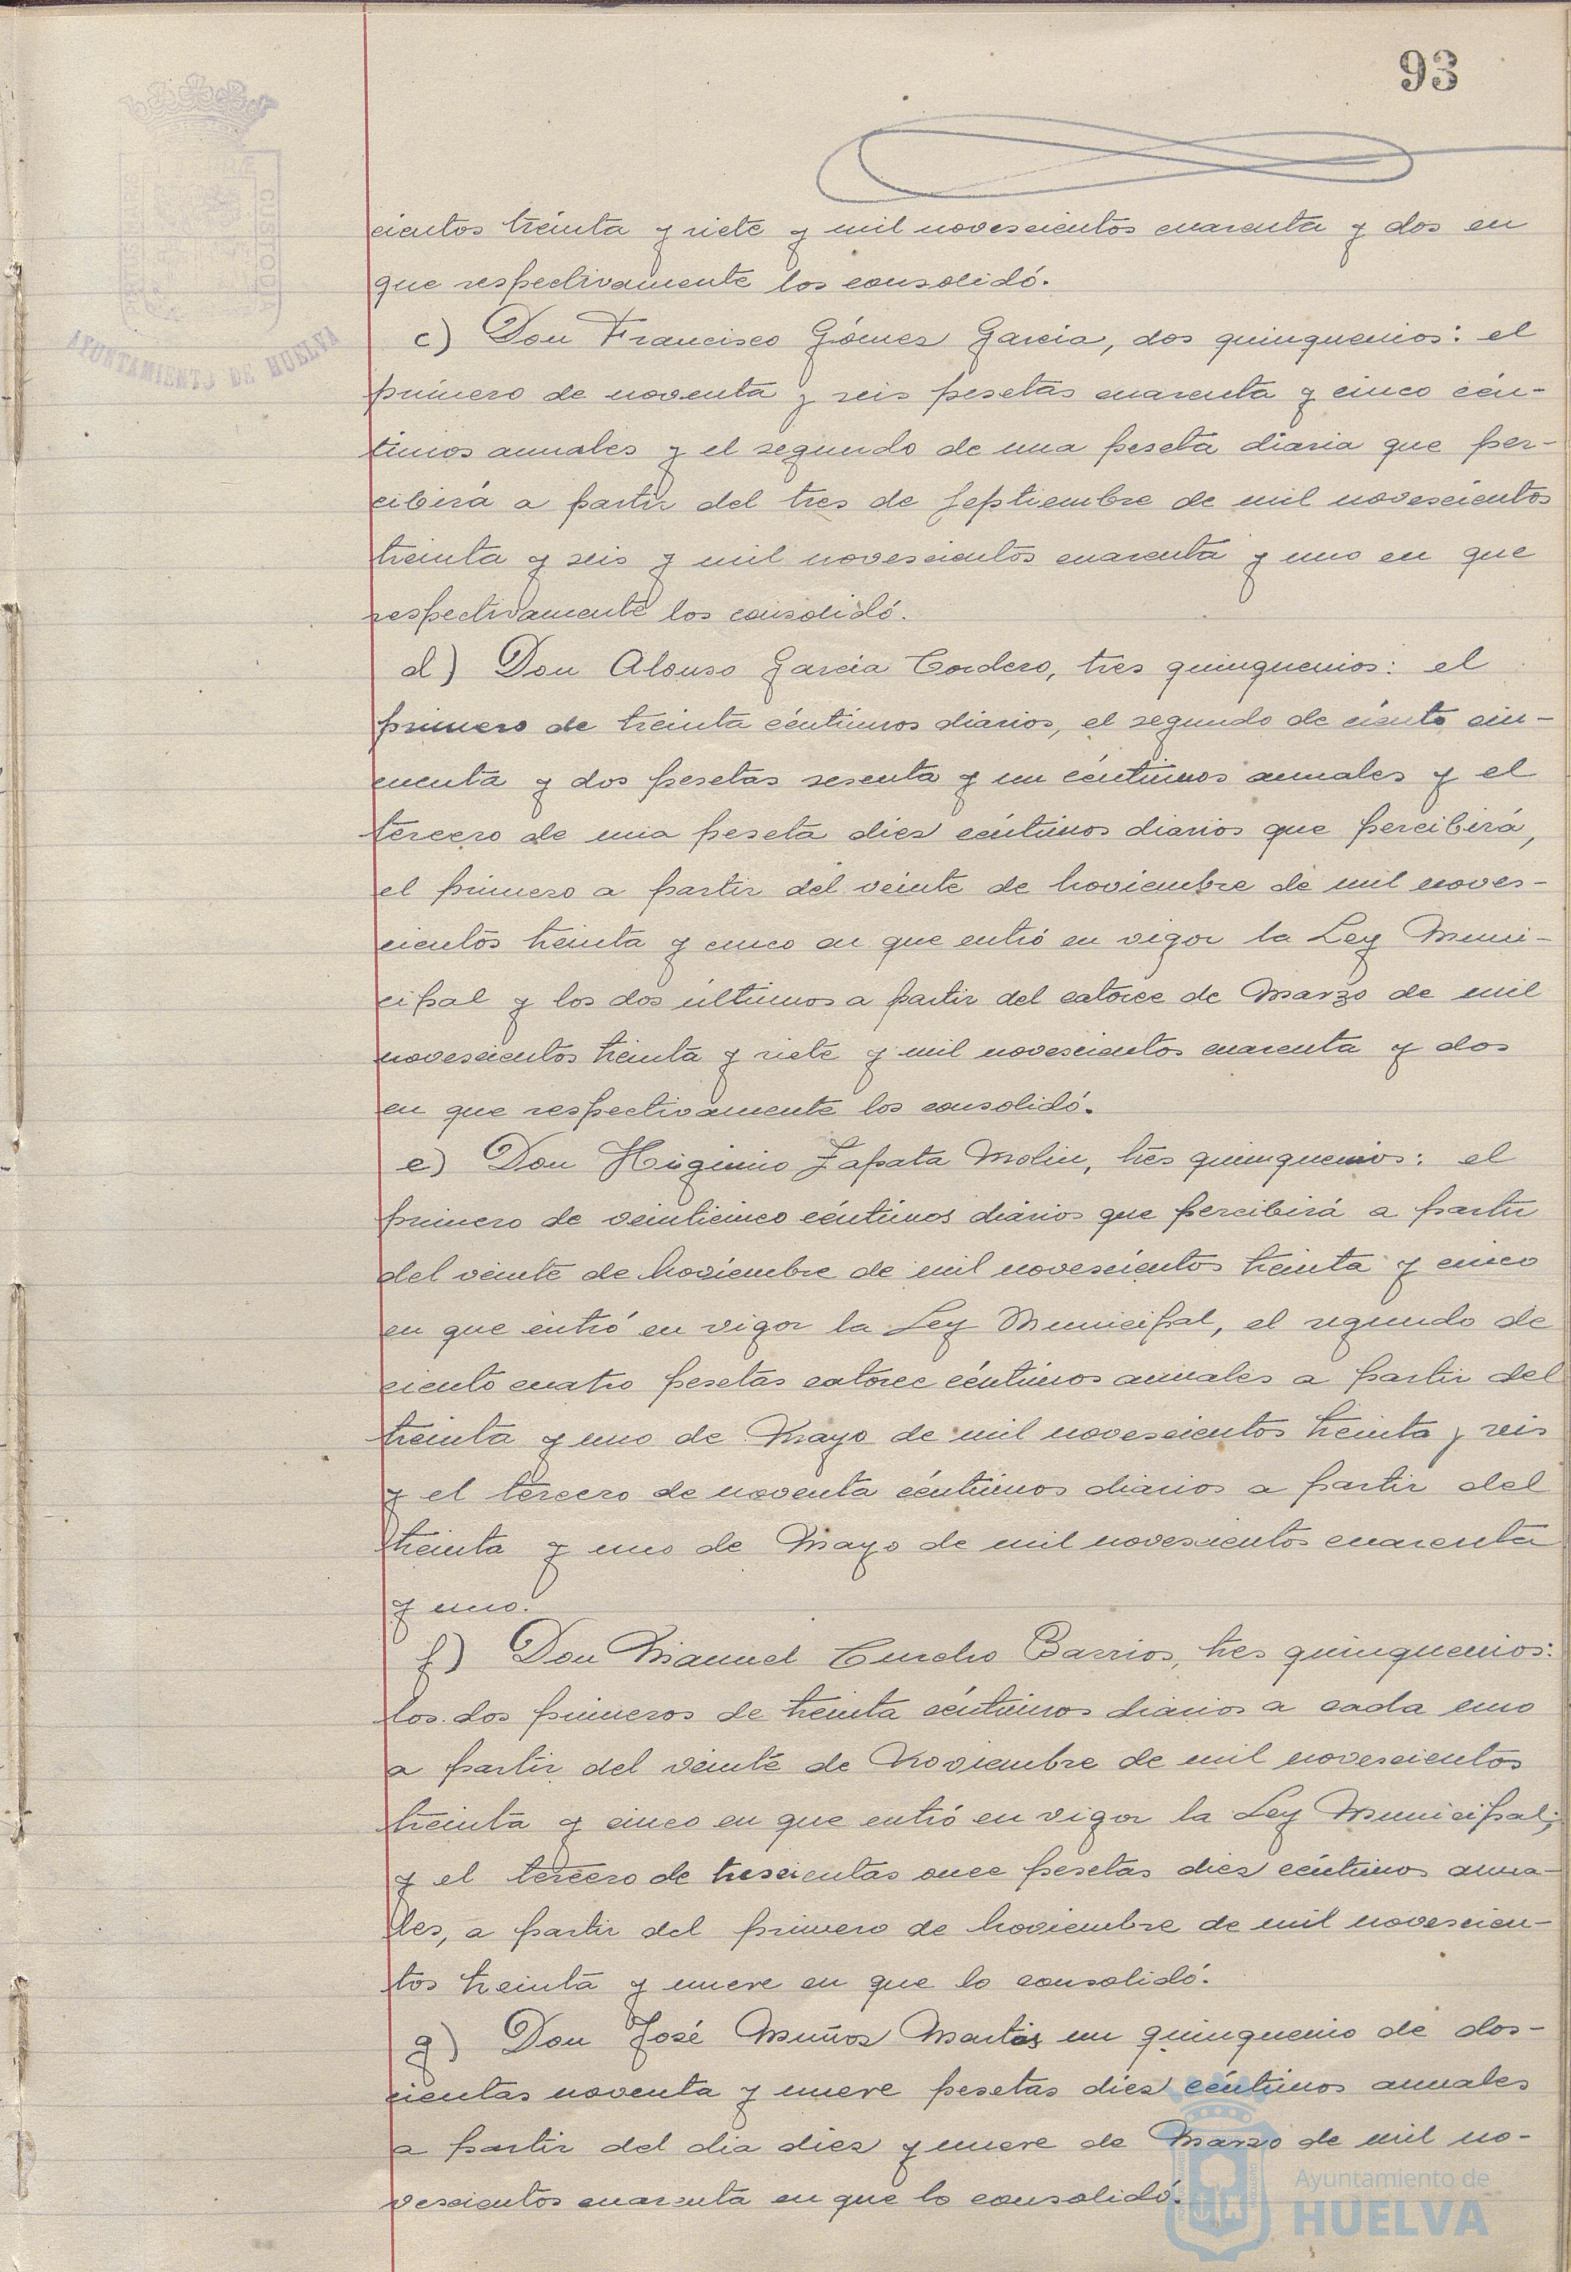 93
AYUNTAMIENTO DE HUELVA
cientos treinta y siete y mil novescientos cuarenta y dos en
que respectivamente los consolidó.
c) Don Francisco Gómez Garcia, dos quinquenios: el
primero de noventa y seis pesetas cuarenta y cinco cén-
timos anuales y el segundo de una peseta diaria que per-
cibirá a partir del tres de Septiembre de mil novescientos
treinta y seis y mil novescientos cuarenta y uno en que
respectivamente los consolidó.
d) Don Alonso Garcia Cordero, tres quinquenios: el
primero de treinta céntimos diarios, el segundo de ciento cin-
cuenta y dos pesetas sesenta y un céntimos anuales y el
tercero de una peseta diez céntimos diarios que percibirá,
el primero a partir del veinte de Noviembre de mil noves-
cientos treinta y cinco en que entró en vigor la Ley Muni-
cipal y los dos últimos a partir del catorce de Marzo de mil
novescientos treinta y siete y mil novescientos cuarenta y dos
en que respectivamente los consolidó.
e) Don Higinio Zapata Molin, tres quinquenios: el
primero de veinticinco céntimos diarios que percibirá a partir
del veinte de Noviembre de mil novescientos treinta y cinco
en que entró en vigor la Ley Municipal, el segundo de
ciento cuatro pesetas catorce céntimos anuales a partir del
treinta y uno de Mayo de mil novescientos treinta y seis
y el tercero de noventa céntimos diarios a partir del
treinta y uno de Mayo de mil novescientos cuarenta
y uno.
f) Don Manuel Barrios, tres quinquenios:
los dos primeros de treinta céntimos diarios a cada uno
a partir del veinte de Noviembre de mil novescientos
treinta y cinco en que entró en vigor la Ley Municipal;
y el tercero de trescientas once pesetas diez céntimos anua-
les, a partir del primero de Noviembre de mil novescien-
tos treinta y nueve en que lo consolidó.
g) Don José Muñoz Martin un quinquenio de dos-
cientas noventa y nueve pesetas diez céntimos anuales
a partir del dia diez y nueve de Marzo de mil no-
vescientos cuarenta en que lo consolidó.
Ayuntamiento de
HUELVA